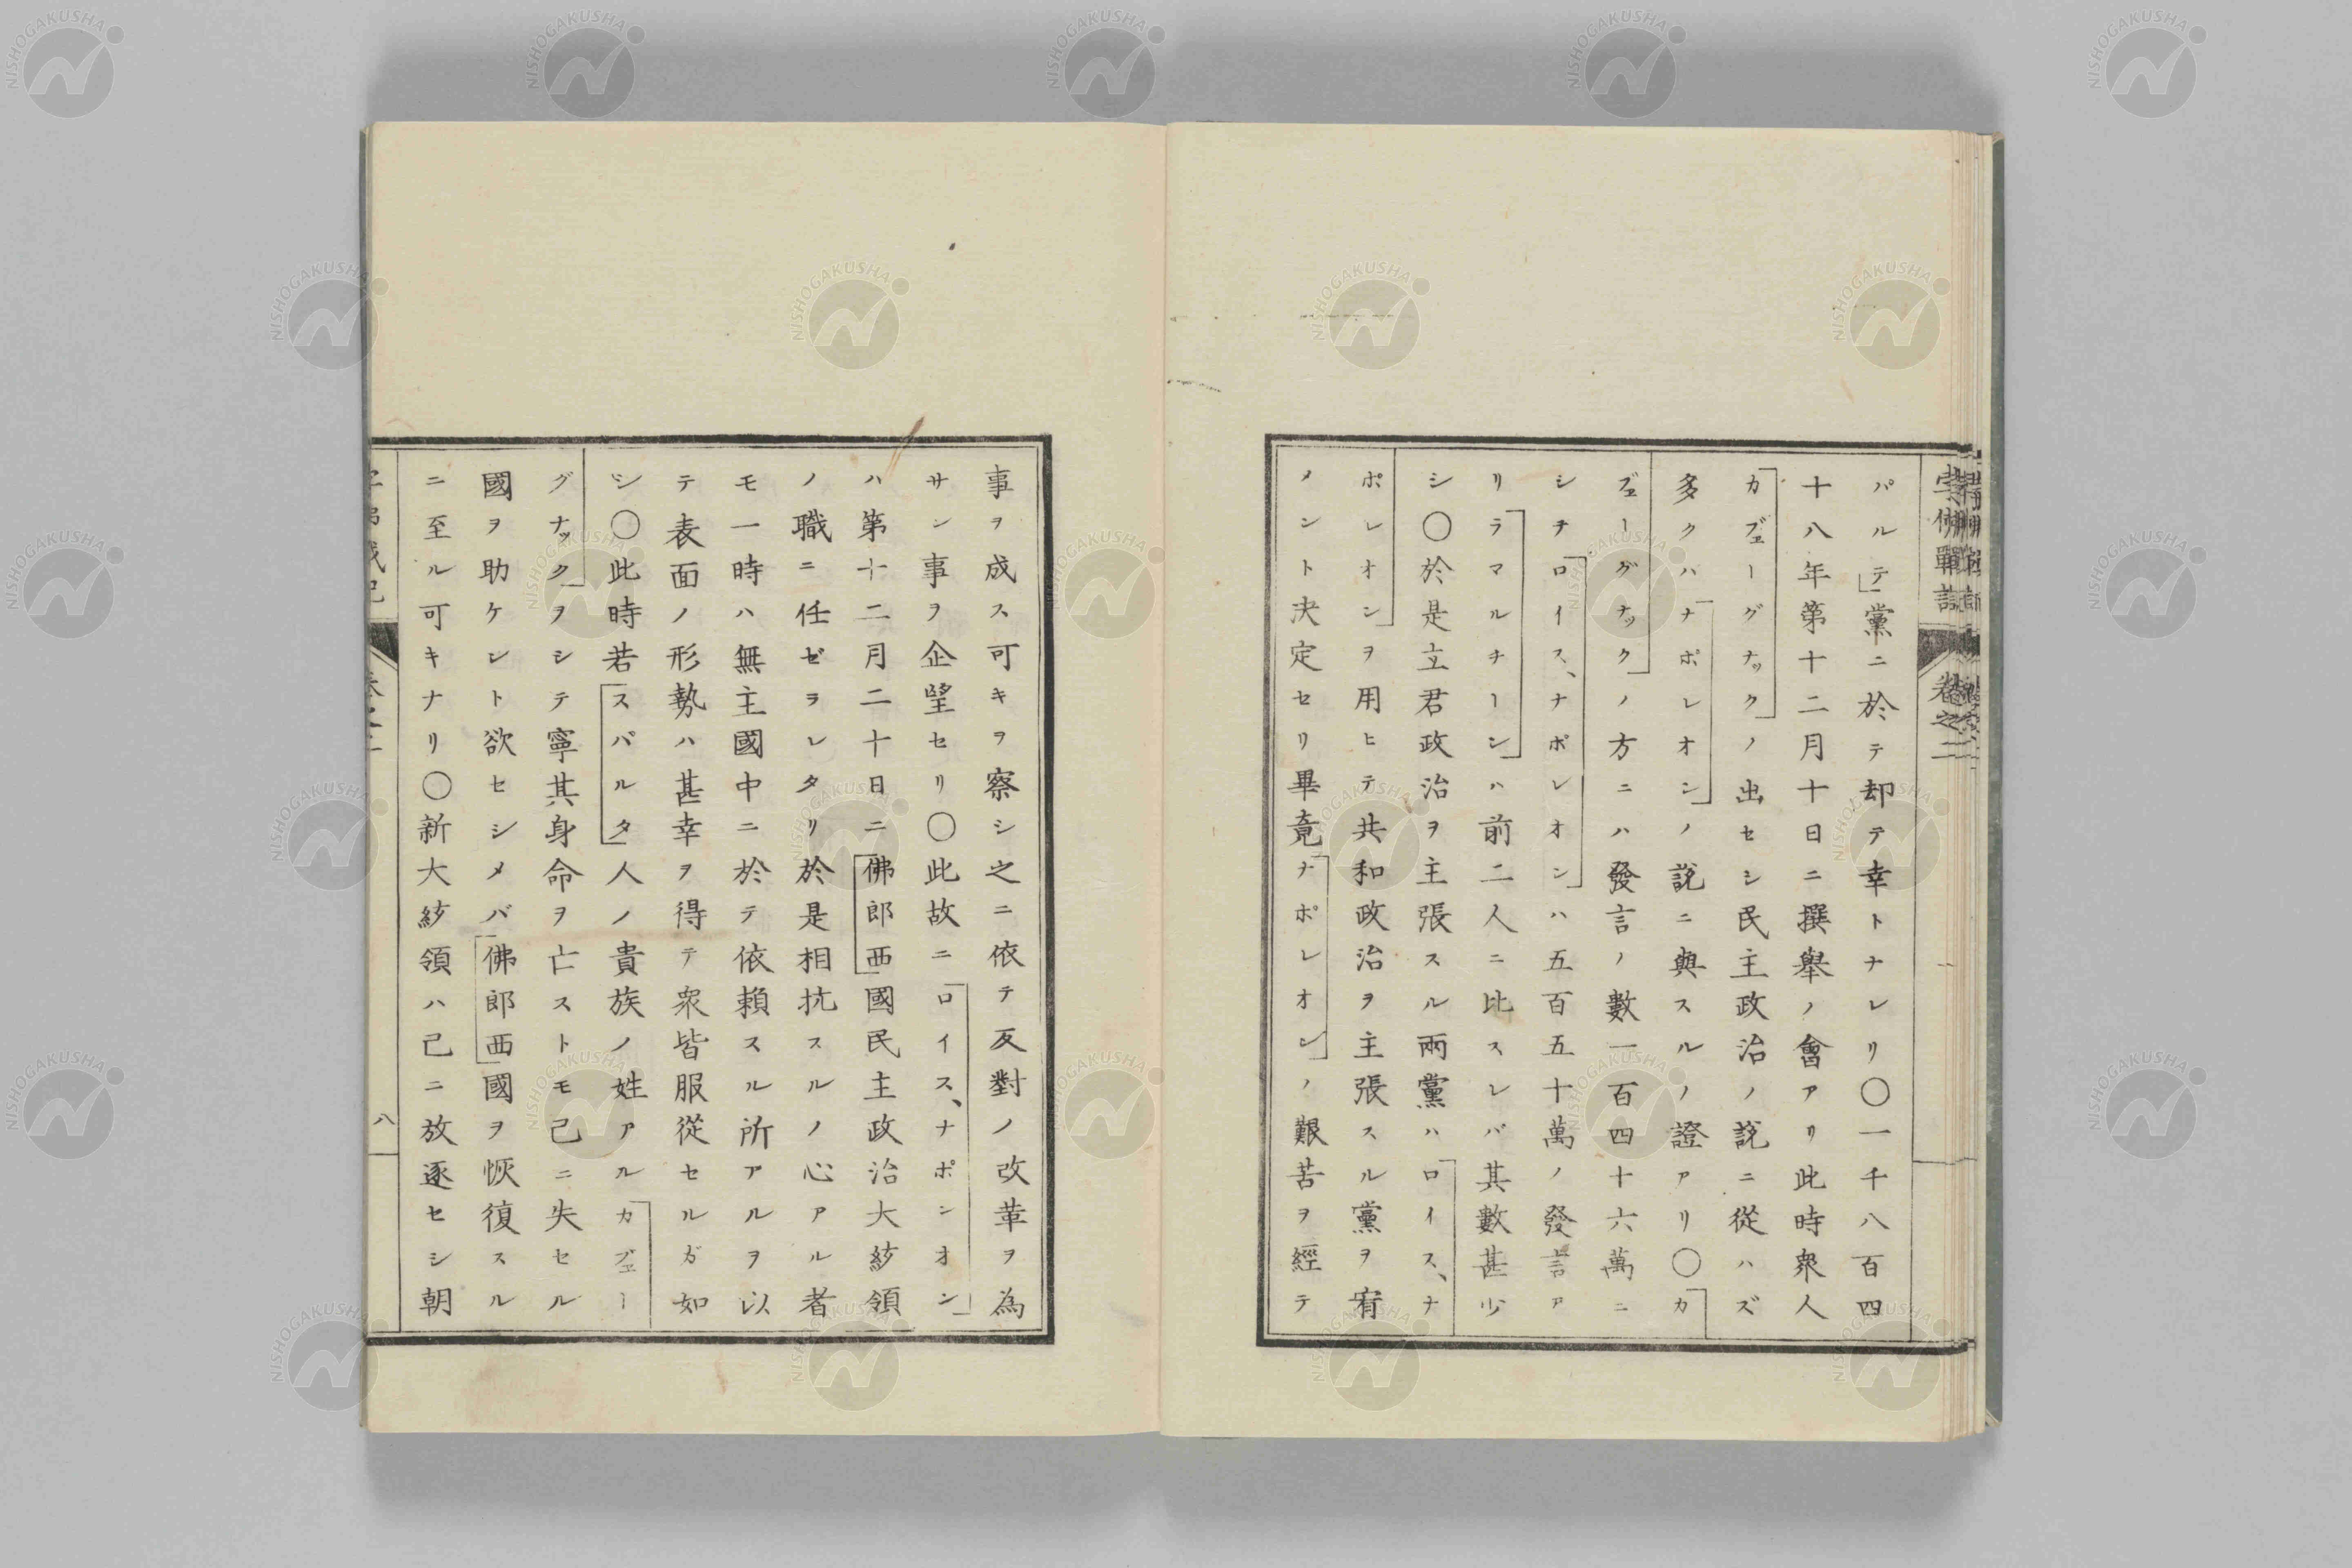 孛佛戰記 卷之二
パルテ黨ニ於テ却テ幸トナレリ〇一千八百四
十八年第十二月十日ニ撰擧ノ會アリ此時衆人
カヴェーグナックノ出セシ民主政治ノ說ニ從ハズ
多クハナポレオンノ說ニ與スルノ證アリ〇カ
ヴェーグナックノ方ニハ發言ノ數一百四十六萬ニ
シテロイス、ナポレオンハ五百五十萬ノ發言ア
リラマルチーンハ前二人ニ比スレバ其數甚少
シ〇於是立君政治ヲ主張スル兩黨ハロイス、ナ
ポレオンヲ用ヒテ共和政治ヲ主張スル黨ヲ宥
メント決定セリ畢竟ナポレオンノ艱苦ヲ經テ
事ヲ成ス可キヲ察シ之ニ依テ反對ノ改革ヲ為
サン事ヲ企望セリ〇此故ニロイス、ナポレオン
ハ第十二月二十日ニ佛郎西國民主政治大統領
ノ職ニ任ゼラレタリ於是相抗スルノ心アル者
モ一時ハ無主國中ニ於テ依賴スル所アルヲ以
テ表面ノ形勢ハ甚幸ヲ得テ衆皆服從セルガ如
シ〇此時若スパルタ人ノ貴族ノ姓アルカヴェー
グナックヲシテ寧其身命ヲ亡ストモ己ニ失セル
國ヲ助ケント欲セシメバ佛郎西國ヲ恢復スル
ニ至ル可キナリ〇新大統領ハ己ニ放逐セシ朝
八
NISHOGAKUSHA